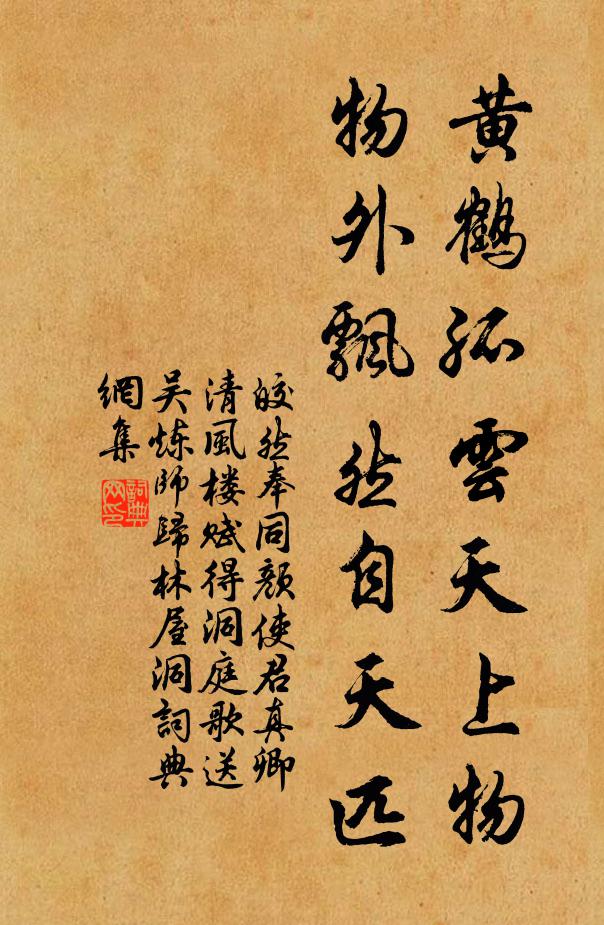 黄鹤孤雲天上物
物外飄然自天匹
皎然奉同颜使君真卿
清風楼赋得洞庭歌送
吴炼师歸林屋洞詞典
網集
詞典
网印